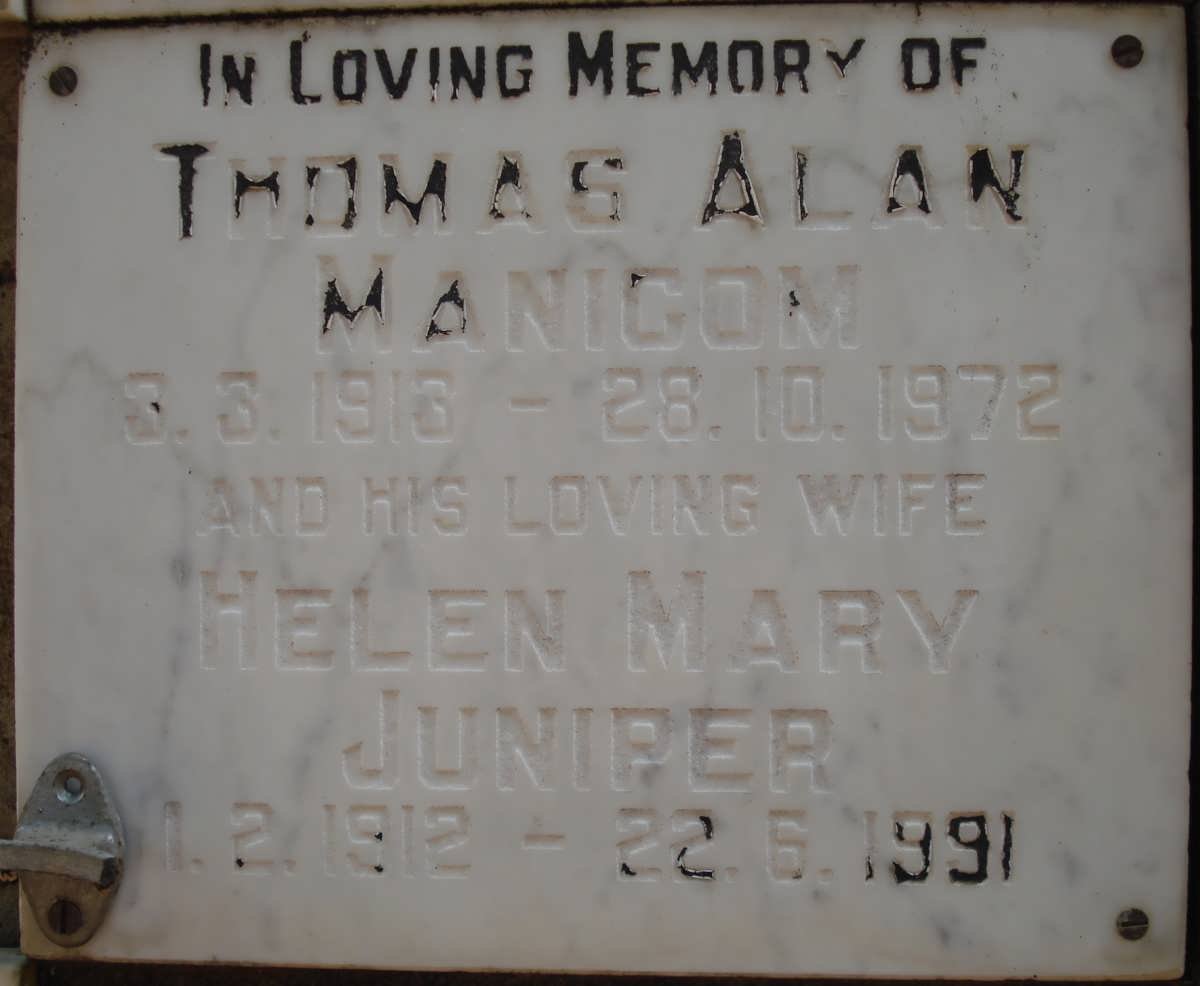 IN LOVING MEMORY OF
THOMAS ALAN
MANICOM
3. 3. 1913 - 28. 10. 1972
AND HIS LOVING WIFE
HELEN MARY
JUNIPER
1. 2. 1912 - 22. 6. 1991